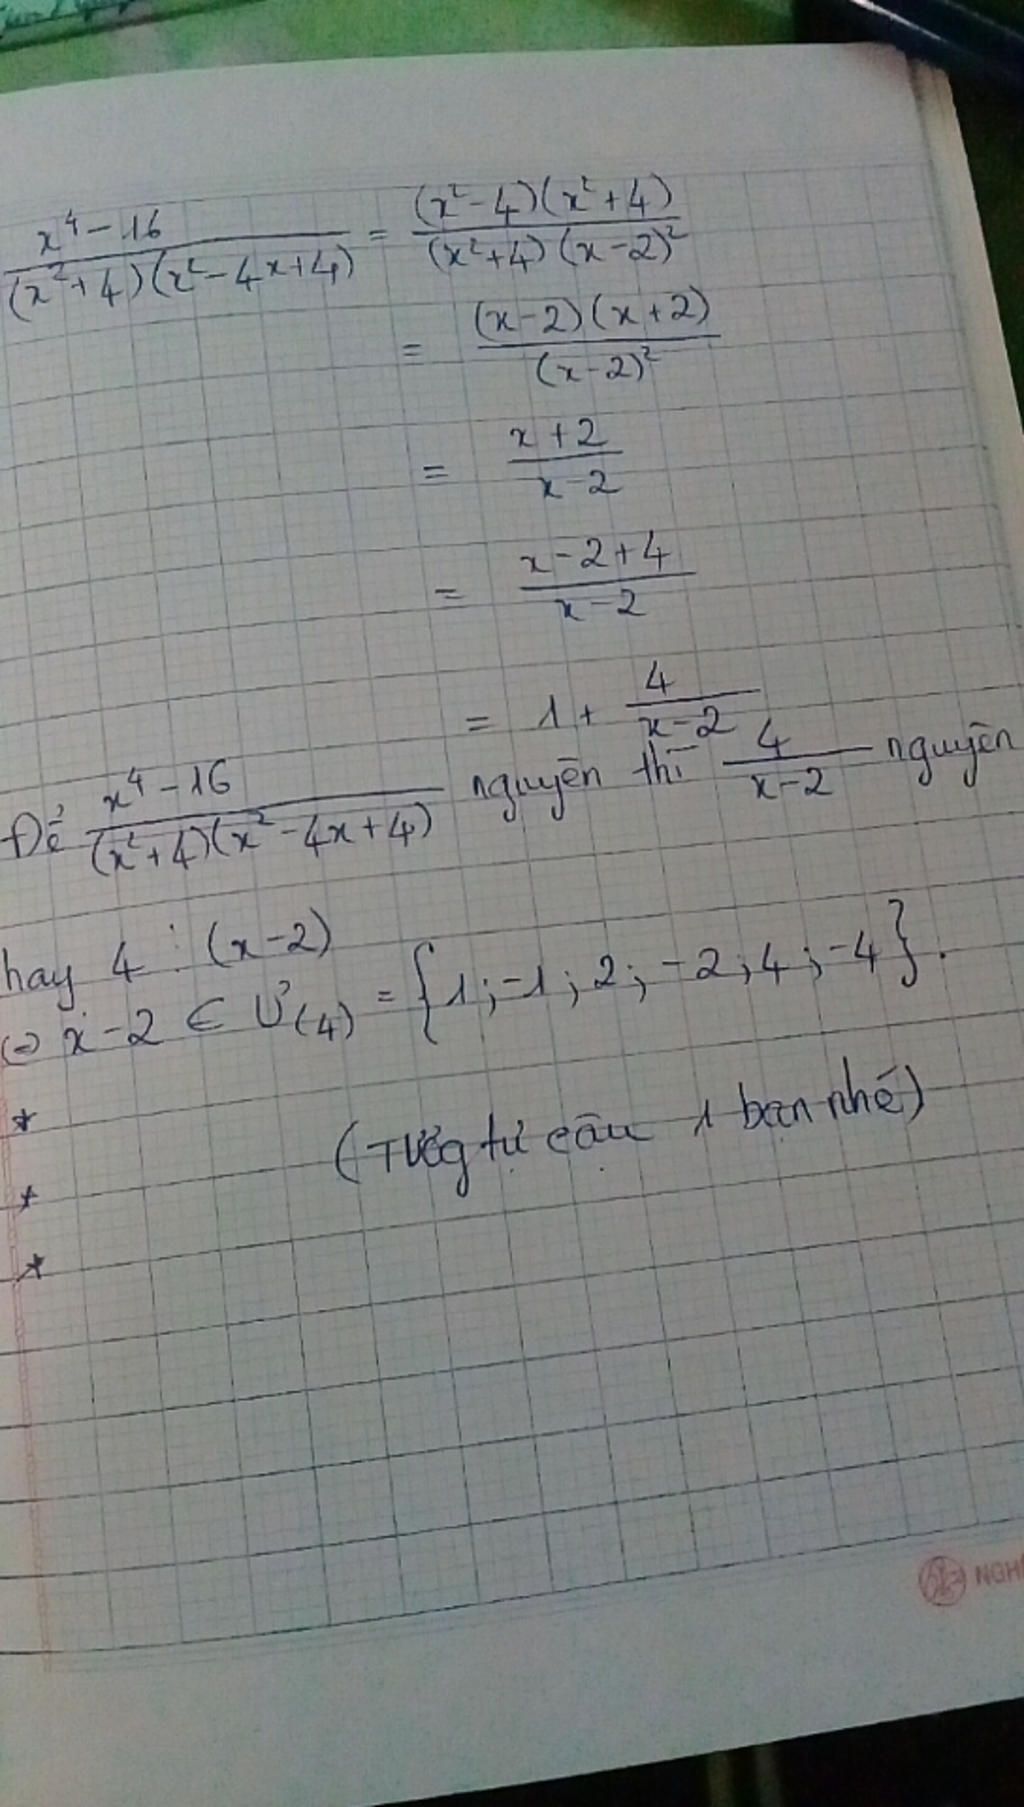 x⁴-16 / (x²+4)(x²-4x+4) = (x²-4)(x²+4) / (x²+4)(x-2)²
= (x-2)(x+2) / (x-2)²
= x+2 / x-2
= x-2+4 / x-2
= 1 + 4 / x-2
Để x⁴-16 / (x²+4)(x²-4x+4) nguyên thì 4 / x-2 nguyên
hay 4 ⋮ (x-2)
⇔ x-2 ∈ Ư(4) = {1;-1;2;-2;4;-4}.
*
(Tương tự câu 1 bạn nhé)
*
*
NGH